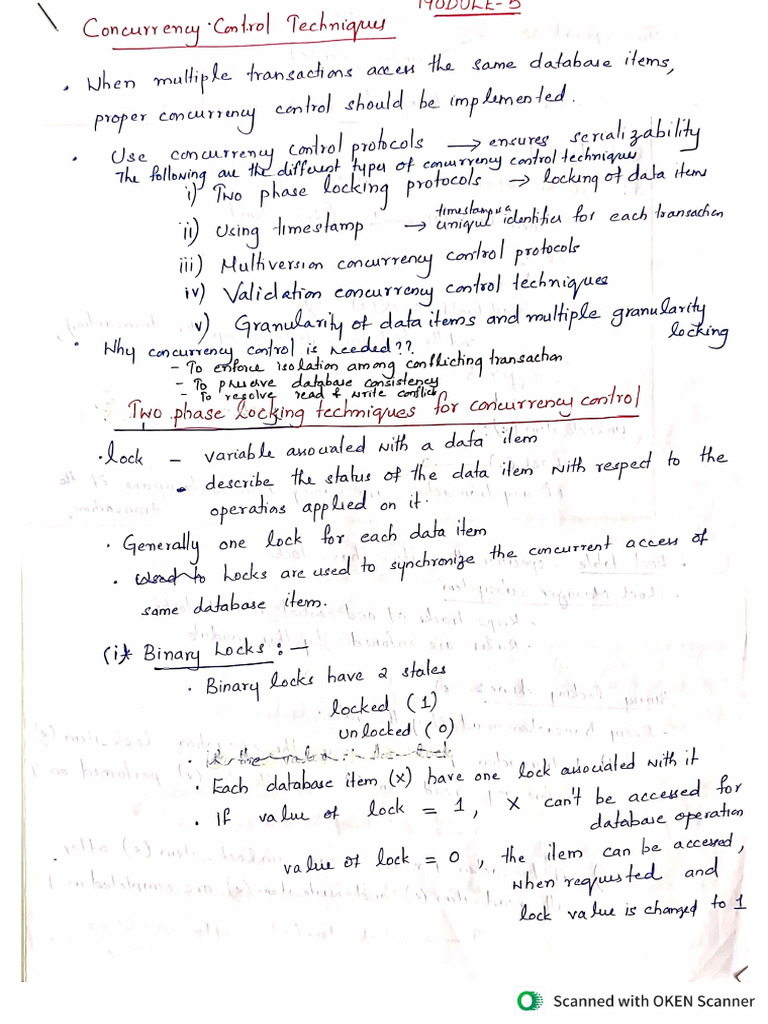 MODULE-5
Concurrency Control Techniques
• When multiple transactions access the same database items,
proper concurrency control should be implemented.
• Use concurrency control protocols → ensures serializability
The following are the different types of concurrency control techniques
i) Two phase locking protocols → locking of data items
ii) Using timestamp → timestamp is a unique identifier for each transaction
iii) Multiversion concurrency control protocols
iv) Validation concurrency control techniques
v) Granularity of data items and multiple granularity
locking
• Why concurrency control is needed??
- To enforce isolation among conflicting transaction
- To preserve database consistency
- To resolve read & write conflict
Two phase locking techniques for concurrency control
• Lock - variable associated with a data item
- describe the status of the data item with respect to the
operations applied on it.
• Generally one lock for each data item
• Used to Locks are used to synchronize the concurrent access of
same database item.
(i) Binary Locks : -
• Binary locks have 2 states
. locked (1)
unlocked (0)
• Each database item (x) have one lock associated with it
• If value of lock = 1, X can't be accessed for
database operation
value of lock = 0, the item can be accessed,
when requested and
lock value is changed to 1
Scanned with OKEN Scanner